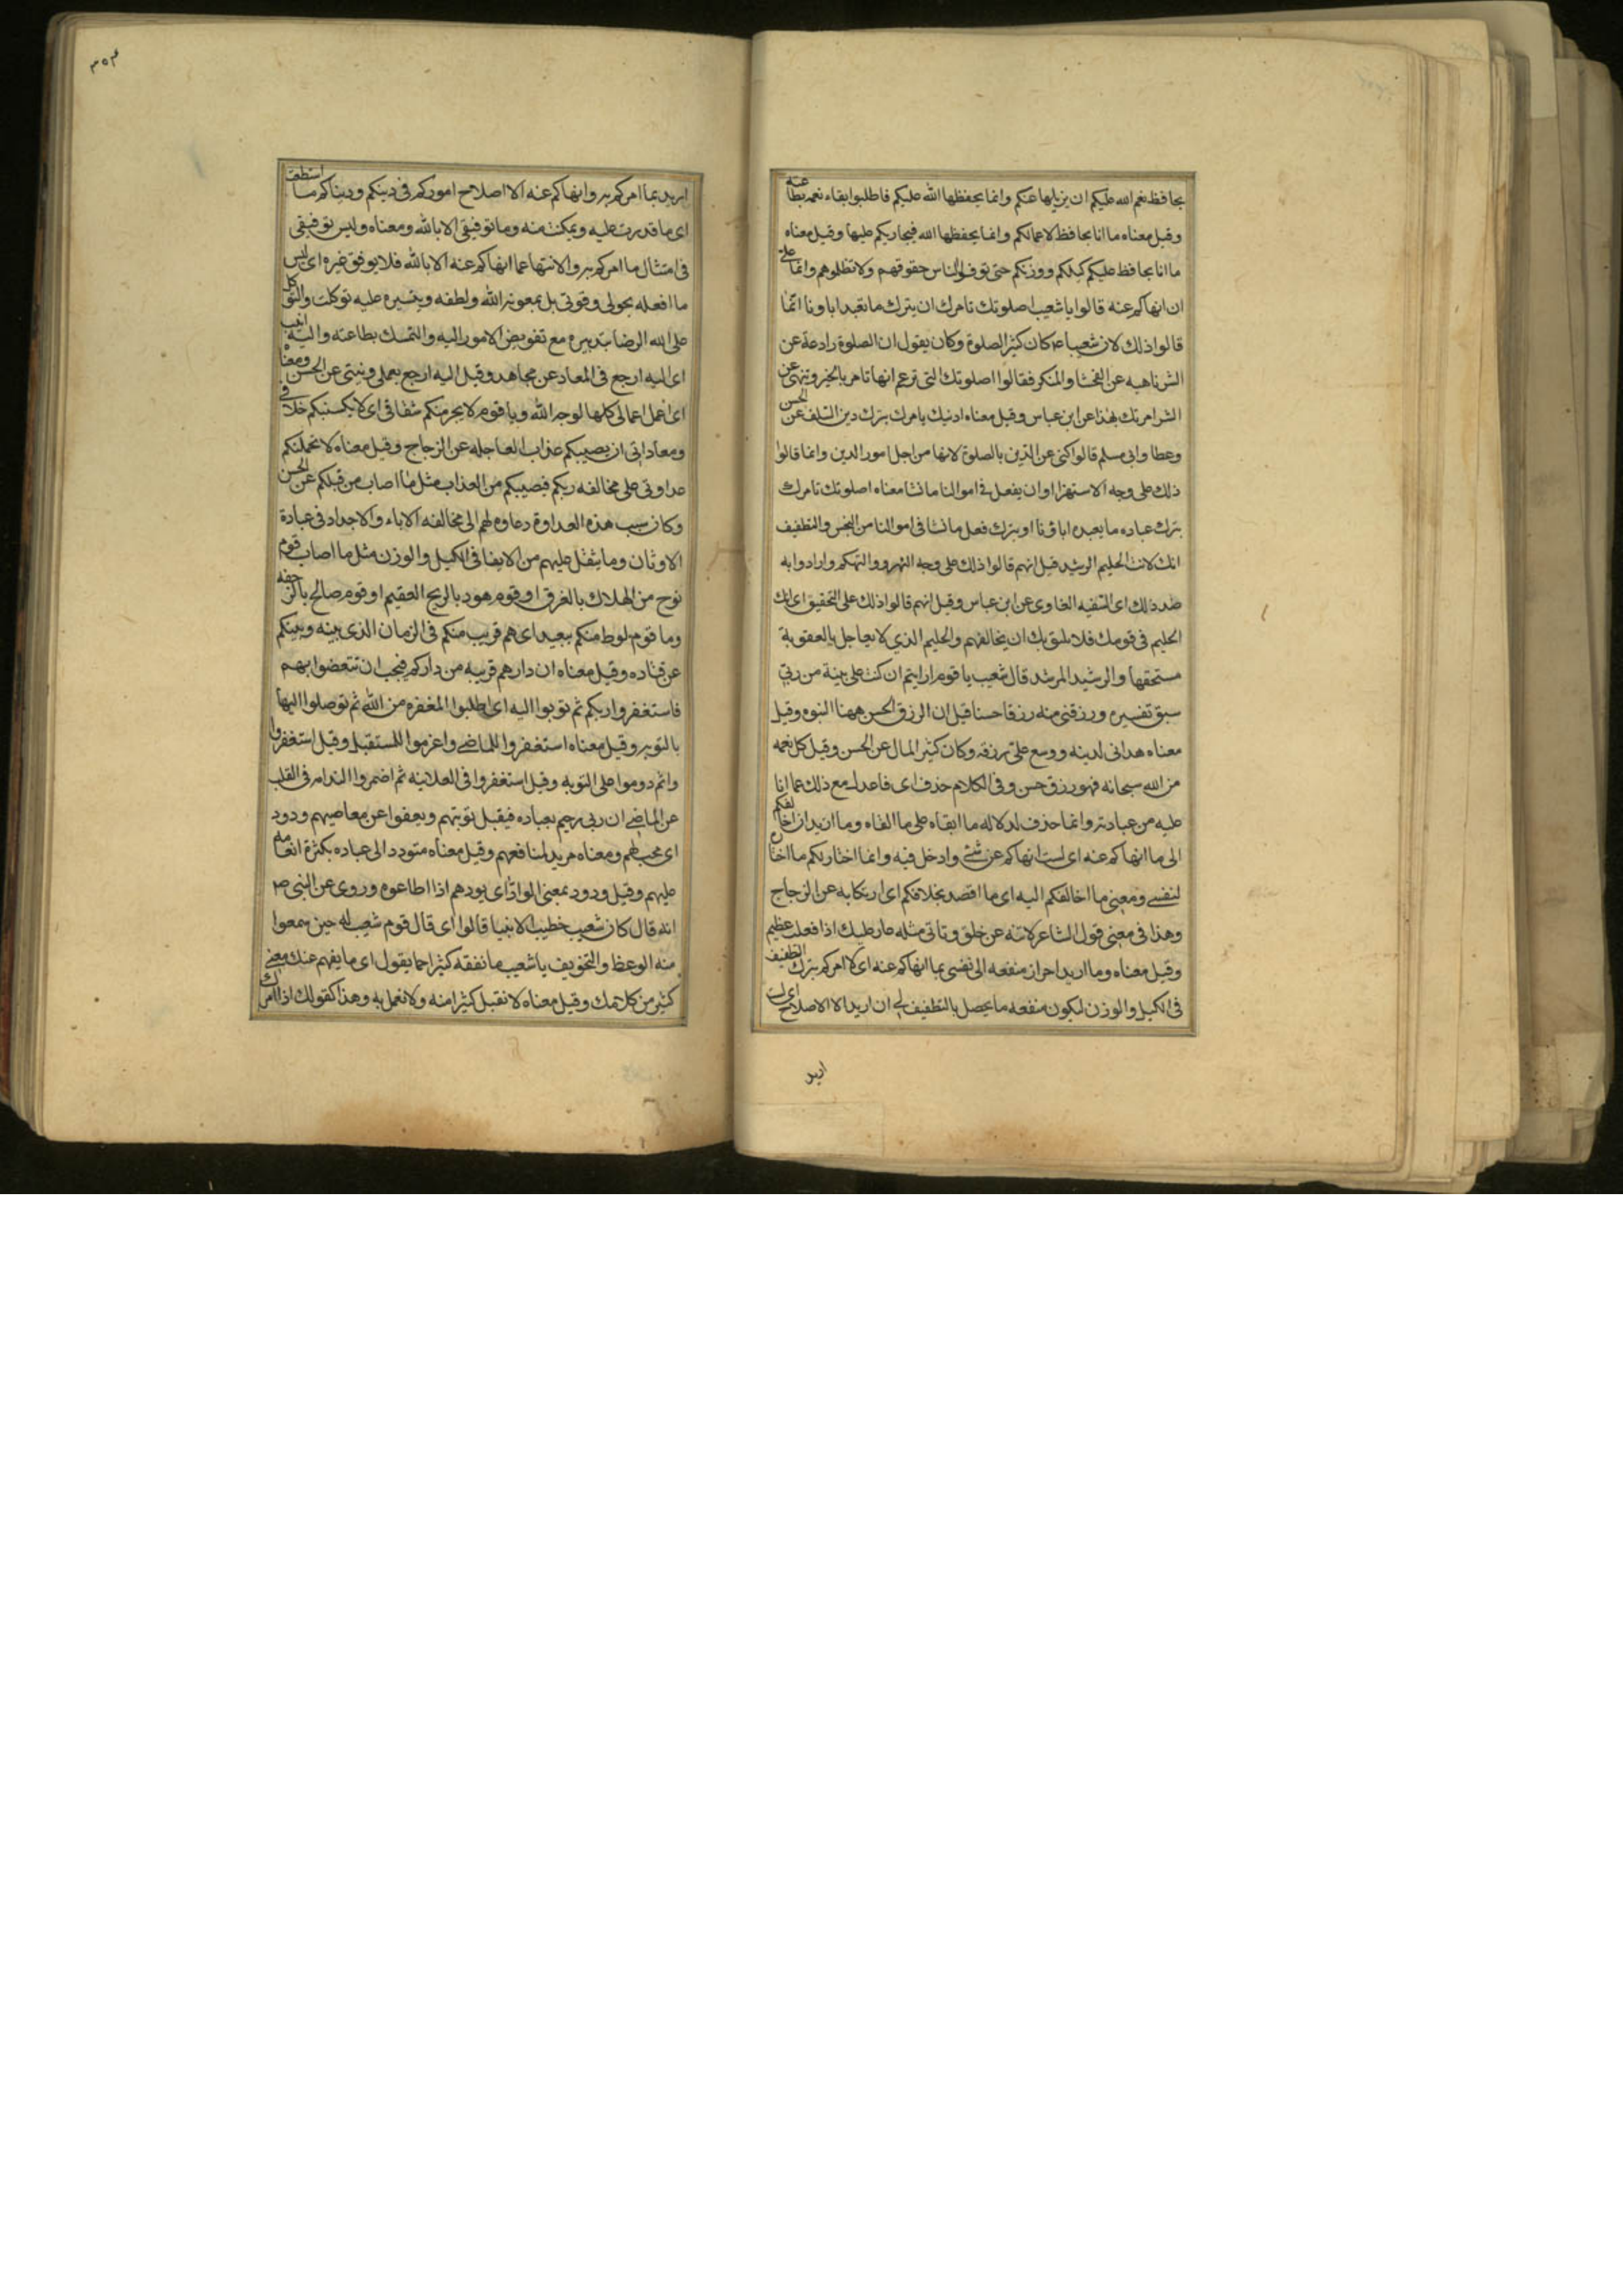 بحافظ نعم الله عليكم ان يزيلها عنكم وانما يحفظها الله عليكم فاطلبوا بقاء نعمه بطاعته
وقيل معناه ما انا بحافظ لاعمالكم وانما يحفظها الله فيجازيكم عليها وقيل معناه
ما انا بحافظ عليكم كيلكم ووزنكم حتى توفوا الناس حقوقهم ولا تظلموهم وانما على
ان انهاكم عنه قالوا يا شعيب اصلوتك تامرك ان يترك ما يعبد اباونا انما
قالوا ذلك لان شعيبا ع كان كثير الصلوة وكان يقول ان الصلوة رادعة عن
الشر ناهيه عن الفحشا والمنكر فقالوا اصلوتك التى تزعم انها تامر بالخير وتنهى عن
الشر امرتك بهذا عن ابن عباس وقيل معناه ادينك يامرك بترك دين السلف عن الحسن
وعطا وابى مسلم قالوا كنى عن الدين بالصلوة لانها من اجل امور الدين وانما قالوا
ذلك على وجه الاستهزا او ان يفعل فى اموالنا ما نشا معناه اصلوتك تامرك
بترك عباده ما يعبده اباؤنا او بترك فعل ما نشا فى اموالنا من البخس والتطفيف
انك لانت الحليم الرشيد قيل انهم قالوا ذلك على وجه الهزو والتهكم وارادوا به
ضد ذلك اى السفيه الغاوى عن ابن عباس وقيل انهم قالوا ذلك على التحقيق اى انك
الحليم فى قومك فلا يليق بك ان يخالفهم والحليم الذي لا يعاجل بالعقوبة
مستحقها والرشيد المرشد قال شعيب يا قوم ارايتم ان كنت على بينة من ربى
سبق تفسيره ورزقنى منه رزقا حسنا قيل ان الرزق الحسن ههنا النبوه وقيل
معناه هدانى لدينه ووسع على رزقه وكان كثير المال عن الحسن وقيل كل نعمه
من الله سبحانه فهو رزق حسن وفى الكلام حذف اى فاعدل مع ذلك عما انا
عليه من عبادته وانما حذف لدلاله ما ابقاه على ما القاه وما اريد ان اخالفكم
الى ما انهاكم عنه اى لست انهاكم عن شئ وادخل فيه وانما اختار لكم ما اختار
لنفسى ومعنى ما اخالفكم اليه اى ما اقصد بخلافكم اى ارتكابه عن الزجاج
وهذا فى معنى قول الشاعر لا تنه عن خلق وتاتى مثله عار عليك اذا فعلت عظيم
وقيل معناه وما اريد احراز منفعه الى نفسى بما انهاكم عنه اى لا امركم بترك التطفيف
فى الكيل والوزن لتكون منفعه ما يحصل بالتطفيف لى ان اريد الا الاصلاح اى لست
اريد
٣٥٣
اريد بما امركم به وانهاكم عنه الا اصلاح اموركم فى دينكم ودنياكم ما استطعت
اى ما قدرت عليه ويمكنت منه وما توفيقى الا بالله ومعناه وليس توفيقى
فى امتثال ما امركم به والانتها عما انهاكم عنه الا بالله فلا يوفق غيره اى ليس
ما افعله بحولى وقوتى بل بمعونه الله ولطفه ويتسيره عليه توكلت والتوكل
على الله الرضا بتدبيره مع تفويض الامور اليه والتمسك بطاعته واليه انيب
اى اليه ارجع فى المعاد عن مجاهد وقيل اليه ارجع بعملى ونيتى عن الحسن ومعناه
اى اعمل اعمالى كلها لوجه الله ويا قوم لا يجرمنكم شقاقى اى لا يكسبنكم خلافى
ومعاداتى ان يصيبكم عذاب العاجله عن الزجاج وقيل معناه لا تحملنكم
عداوتى على مخالفه ربكم فيصيبكم من العذاب مثل ما اصاب من قبلكم عن الحسن
وكان سبب هذه العداوة دعاوه لهم الى مخالفه الاباء والاجداد فى عبادة
الاوثان وما يثقل عليهم من الايفا فى الكيل والوزن مثل ما اصاب قوم
نوح من الهلاك بالغرق او قوم هود بالريح العقيم او قوم صالح بالرجفه
وما قوم لوط منكم ببعيد اى هم قريب منكم فى الزمان الذى بينه وبينكم
عن قتاده وقيل معناه ان دارهم قريبه من داركم فيجب ان تتعضوا بهم
فاستغفروا ربكم ثم توبوا اليه اى اطلبوا المغفره من الله ثم توصلوا اليها
بالتوبه وقيل معناه استغفروا للماضى واعزموا للمستقبل وقيل استغفروا
واثم دوموا على التوبه وقيل استغفروا فى العلانيه ثم اضمروا الندامه فى القلب
عن الماضى ان ربى رحيم بعباده فيقبل توبتهم ويعفوا عن معاصيهم ودود
اى محب لهم ومعناه مريد لمنافعهم وقيل معناه متودد الى عباده بكثرة انعامه
عليهم وقيل ودود بمعنى الواد اى يودهم اذا اطاعوه وروى عن النبى ص
انه قال كان شعيب خطيب الانبيا قالوا اى قال قوم شعيب له حين سمعوا
منه الوعظ والتخويف يا شعيب ما نفقه كثيرا مما يقول اى ما يفهم عنك معنى
كثير من كلامك وقيل معناه لا نقبل كثيرا منه ولا نعمل به وهذا كقولك اذا امرك